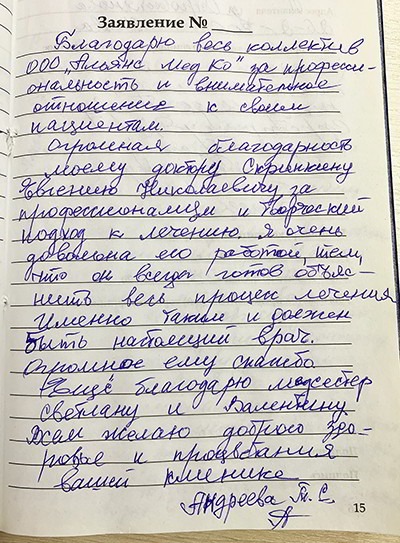 Заявление №
Благодарю весь коллектив
ООО „Альянс Мед Ко" за професси-
ональность и внимательное
отношение к своим
пациентам.
Огромная благодарность
моему доктору Скрипкину
Евгению Николаевичу за
профессионализм и творческий
подход к лечению. Я очень
довольна его работой, тем,
что он всегда готов объяс-
нить весь процес лечения
Именно таким и должен
быть настоящий врач.
Огромное ему спасибо.
Ещё благодарю медсестер
Светлану и Валентину
Жам желаю доброго здо-
ровье и процветания
вашей клинике
Андреева Т. С.
15